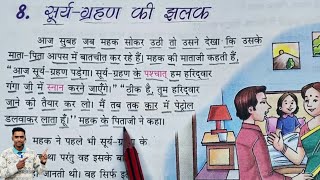 8. सूर्य-ग्रहण की झलक
आज सुबह जब महक सोकर उठी तो उसने देखा कि उसके
माता-पिता आपस में बातचीत कर रहे हैं। महक की माताजी कहती हैं,
“आज सूर्य-ग्रहण पड़ेगा। सूर्य-ग्रहण के पश्चात् हम हरिद्वार
गंगा जी में स्नान करने जाएँगे।” “ठीक है, तुम हरिद्वार
जाने की तैयार कर लो। मैं तब तक कार में पेट्रोल
डलवाकर लाता हूँ।” महक के पिताजी ने कहा।
महक ने पहले भी सूर्य-ग्रहण के
था परंतु वह इसके बा
जानती थी। वह सिर्फ इ